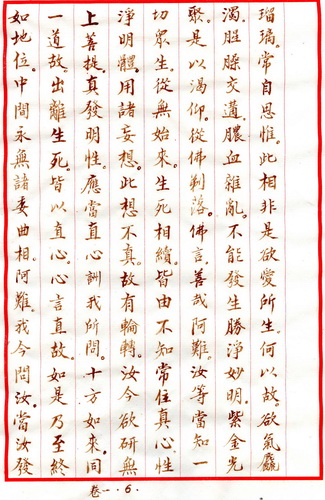 瑠璃。常自思惟。此相非是欲愛所生。何以故。欲氣麤
濁。腥臊交遘。膿血雜亂。不能發生勝淨妙明。紫金光
聚。是以渴仰。從佛剃落。佛言。善哉阿難。汝等當知一
切眾生。從無始來。生死相續。皆由不知常住真心。性
淨明體。用諸妄想。此想不真。故有輪轉。汝今欲研無
上菩提。真發明性。應當直心詶我所問。十方如來。同
一道故。出離生死。皆以直心。心言直故。如是乃至終
始地位。中間永無諸委曲相。阿難。我今問汝。當汝發
卷一·6.